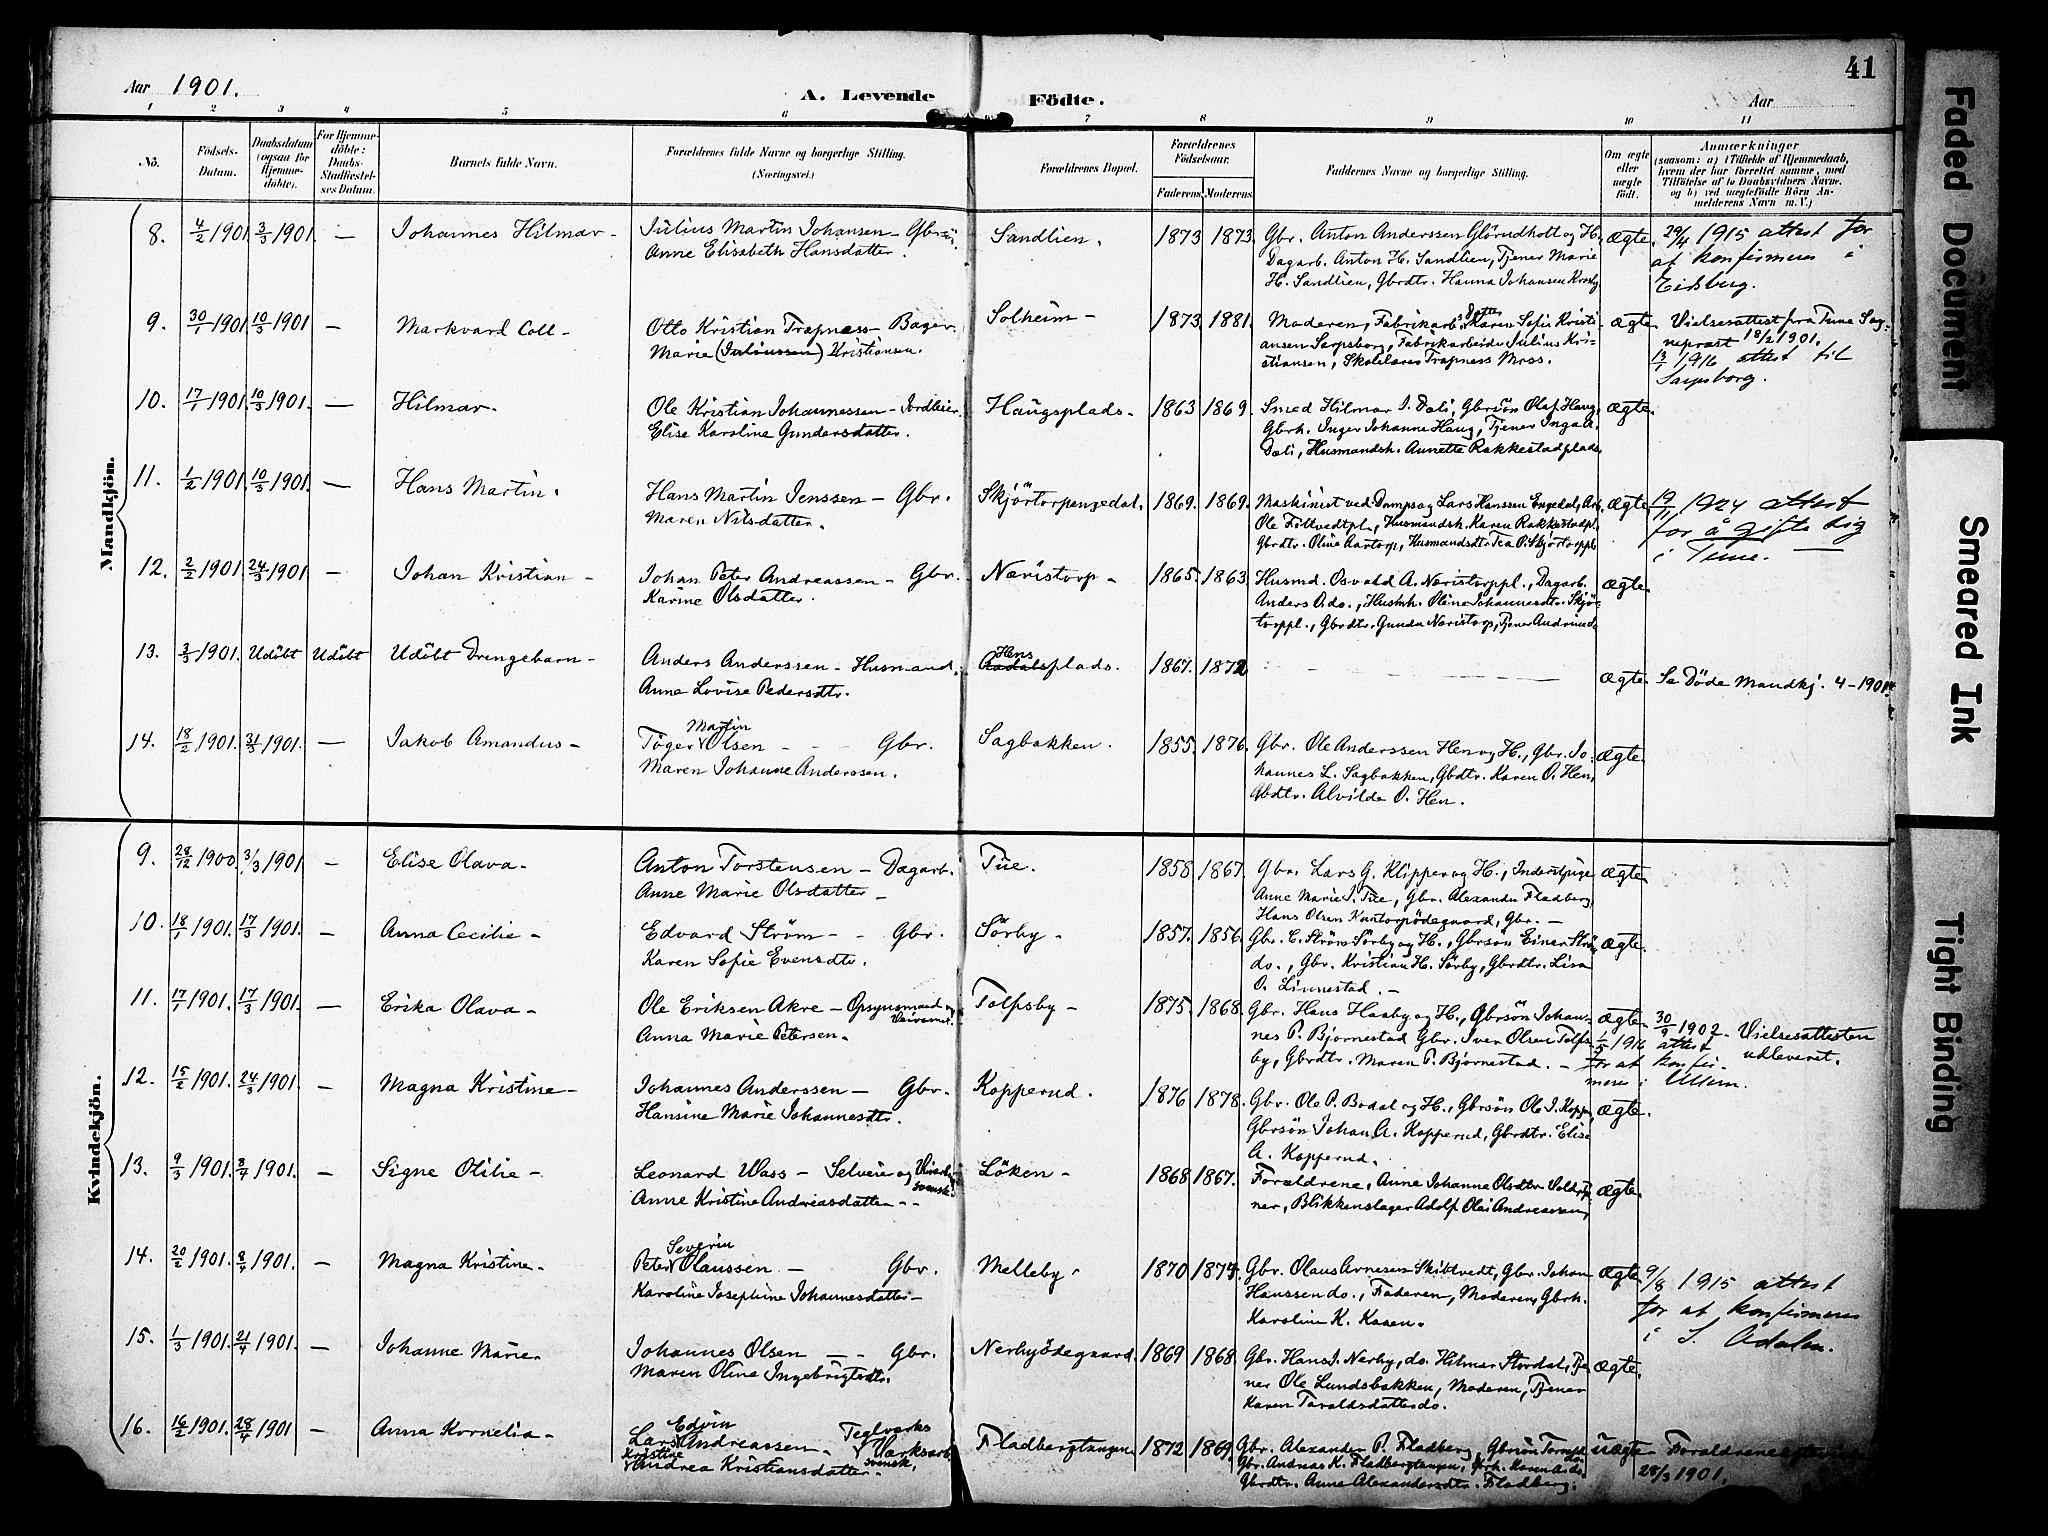 41
Aar 1901.
A. Levende Födte.
Aar
1 2 3 4 5 6 7 8 9 10 11
No.
Födsels-Datum.
Daabsdatum (ogsaa for Hjemme-döbte).
For Hjemme-döbte: Daabs-Stadfæstel-ses Datum.
Barnets fulde Navn.
Forældrenes fulde Navne og borgerlige Stilling. (Næringsvei.)
Forældrenes Bopæl.
Forældrenes Födselsaar.
Faderens. Moderens.
Faddernes Navne og borgerlige Stilling.
Om ægte eller uægte födt.
Anmærkninger
(saasom: a) i Tilfælde af Hjemmedaab,
hvem der har forrettet samme, med
Tilföielse af to Daabsvidners Navne.
og b) ved uægtefödte Börn An-
melderens Navn m. V.)
Mandkjön.
8. 4/2 1901 3/3 1901. — Johannes Hilmar — Julius Martin Johansen — Gbrsön. Sandlien. 1873 1873. Gbr. Anton Anderssen Glörudholt og H., ægte. 29/4 1915 attest for
Anne Elisabeth Hansdatter. Dagarb. Anton H. Sandlien, Tjener Marie at konfirmeres i
H. Sandlien, Gbrdtr. Hanna Johansen Krosby Eidsberg.
9. 30/1 1901 10/3 1901 — Markvard Coll — Otto Kristian Trapness — Bager. Solheim — 1873. 1881. Moderen, Fabrikarb.s Datter Karen Sofie Kristi- ægte. Vielsesattest fra Tune Sog-
Marie (Juliussen) Kristiansen. ansen Sarpsborg, Fabrikarbeider Julius Kri- neprest 18/2 1901.
stiansen, Skolelærer Trapness Moss. 13/1 1916 attest til
Sarpsborg.
10. 17/1 1901. 10/3 1901. — Hilmar. Ole Kristian Johannessen — Jordleier. Haugsplads. 1863 1869. Smed Hilmar J. Dæli, Gbrsön Olaf Haug, ægte.
Elise Karoline Gundersdatter. Gbrk. Inger Johanne Haug, Tjener Inga
Dæli, Husmandsk. Annette Rakkestadplads.
11. 1/2 1901. 10/3 1901. — Hans Martin. Hans Martin Jenssen — Gbr. Skjörtorpengedal. 1869. 1869. Maskinist ved Dampsag Lars Hanssen Engedal, ægte. 19/11 1924 attest
Maren Nilsdatter. Husmandsk. Karen Rakkestadpl. for å gifte sig
Gbrdtr. Oline Aartorp, Husmandsdtr Tea O. Skjörtorppl. i Tune. —
12. 2/2 1901. 24/3 1901. — Johan Kristian — Johan Peter Andreassen — Gbr. Næristorp — 1865. 1863. Husmd. Osvald A. Næristorppl., Dagarb. ægte.
Karine Olsdatter. Anders O. do., Husmk. Oline Johannesdtr. Skjö-
torppl., Gbrdtr. Gunda Næristorp, Tjener
13. 3/3 1901. Udöbt Udöbt Udöbt Drengebarn — Anders Anderssen — Husmand. Hensplads. 1867. 1872 ægte. Se Döde Mandkj. 4 — 1901.
Anne Lovise Pedersdtr.
14. 18/2 1901. 31/3 1901. — Jakob Amandus — Töger Martin Olsen — Gbr. Sagbakken. 1855. 1876. Gbr. Ole Anderssen Hen og H., Gbr. Jo- ægte.
Maren Johanne Anderssen. hannes L. Sagbakken, Gbdtr. Karen O. Hen,
Gbdtr. Alvilde O. Hen.
Kvindekjön.
9. 28/12 1900. 3/3 1901 — Elise Olava — Anton Torstensen — Dagarb. Tue. 1858 1867. Gbr. Lars G. Klipper og H., Inderstpige ægte.
Anne Marie Olsdatter — Anne Marie J. Tue, Gbr. Alexander Fladberg,
Hans Olsen Kustorpödegaard, Gbr. —
10. 18/1 1901. 17/3 1901. — Anna Cecilie — Edvard Ström — Gbr. Sörby — 1857. 1856. Gbr. C. Ström Sörby og H., Gbrsön Einer Ström ægte.
Karen Sofie Evensdtr. do., Gbr. Kristian H. Sörby, Gbrdtr. Lisa
O. Linnestad. —
11. 17/1 1901. 17/3 1901. — Erika Olava — Ole Eriksen Akre — Opsynsmand Tolfsby — 1875. 1868. Gbr. Hans Haaby og H., Gbrsön Johan- ægte. 30/9 1902 — Vielsesattesten
Anna Marie Petersen. nes P. Bjørnestad Gbr. Iver Olsen Tolfs- 1/5 1916 attest udleveret.
by, Gbrdtr. Maren P. Bjørnestad. — for at konfir-
meres i Ullern.
12. 15/2 1901. 24/3 1901 — Magna Kristine — Johannes Anderssen — Gbr. Kopperud. 1876 1878. Gbr. Ole P. Bodal og H., Gbrsön Ole J. Kopper, ægte.
Hansine Marie Johannesdtr. Gbrsön Johan A. Kopperud, Gbrdtr. Elise
A. Kopperud.
13. 9/3 1901. 8/4 1901. — Signe Otilie — Leonard Wass — Selveier og svensk. Löken — 1868 1867. Forældrene, Anne Johanne Olsdtr. ægte.
Anne Kristine Andreasdatter — ner, Blikkenslager Adolf Olai Andreassen,
14. 20/2 1901. 8/4 1901. — Magna Kristine — Peter Severin Olaussen — Gbr. Melleby. 1870 1874. Gbr. Olaus Arnesen Skibtvedt, Gbr. Johan ægte. 9/8 1915 attest
Karoline Josephine Johannesdatter — Hanssen do., Faderen, Moderen, Gbrk. for at konfirmeres
Karoline K. Kasen. i S. Odalen.
15. 1/3 1901. 21/4 1901. — Johanne Marie. Johannes Olsen — Gbr. Nerbyödegaard. 1869 1868. Gbr. Hans J. Nerby, do. Hilmar Stordal, Tje- ægte.
Maren Oline Ingebrigtsdtr. ner Ole Lundsbakken, Moderen, Tjener
Karen Taraldsdatter do.
16. 16/2 1901. 28/4 1901 — Anna Kornelia — Lars Edvin Andreassen — Teglverks Værksarb. svensk. Fladbergtangen 1872 1869. Gbr. Alexander P. Fladberg, Gbrsön do. uægte — Forældrene
Kristine Andrea Kristiansdatter. Gbr. Andreas K. Fladbergtangen, Gbrk. Karen do. 28/3 1901.
Gbrdtr. Anne Alexandersdtr. Fladberg.
Faded Document
Smeared Ink
Tight Binding